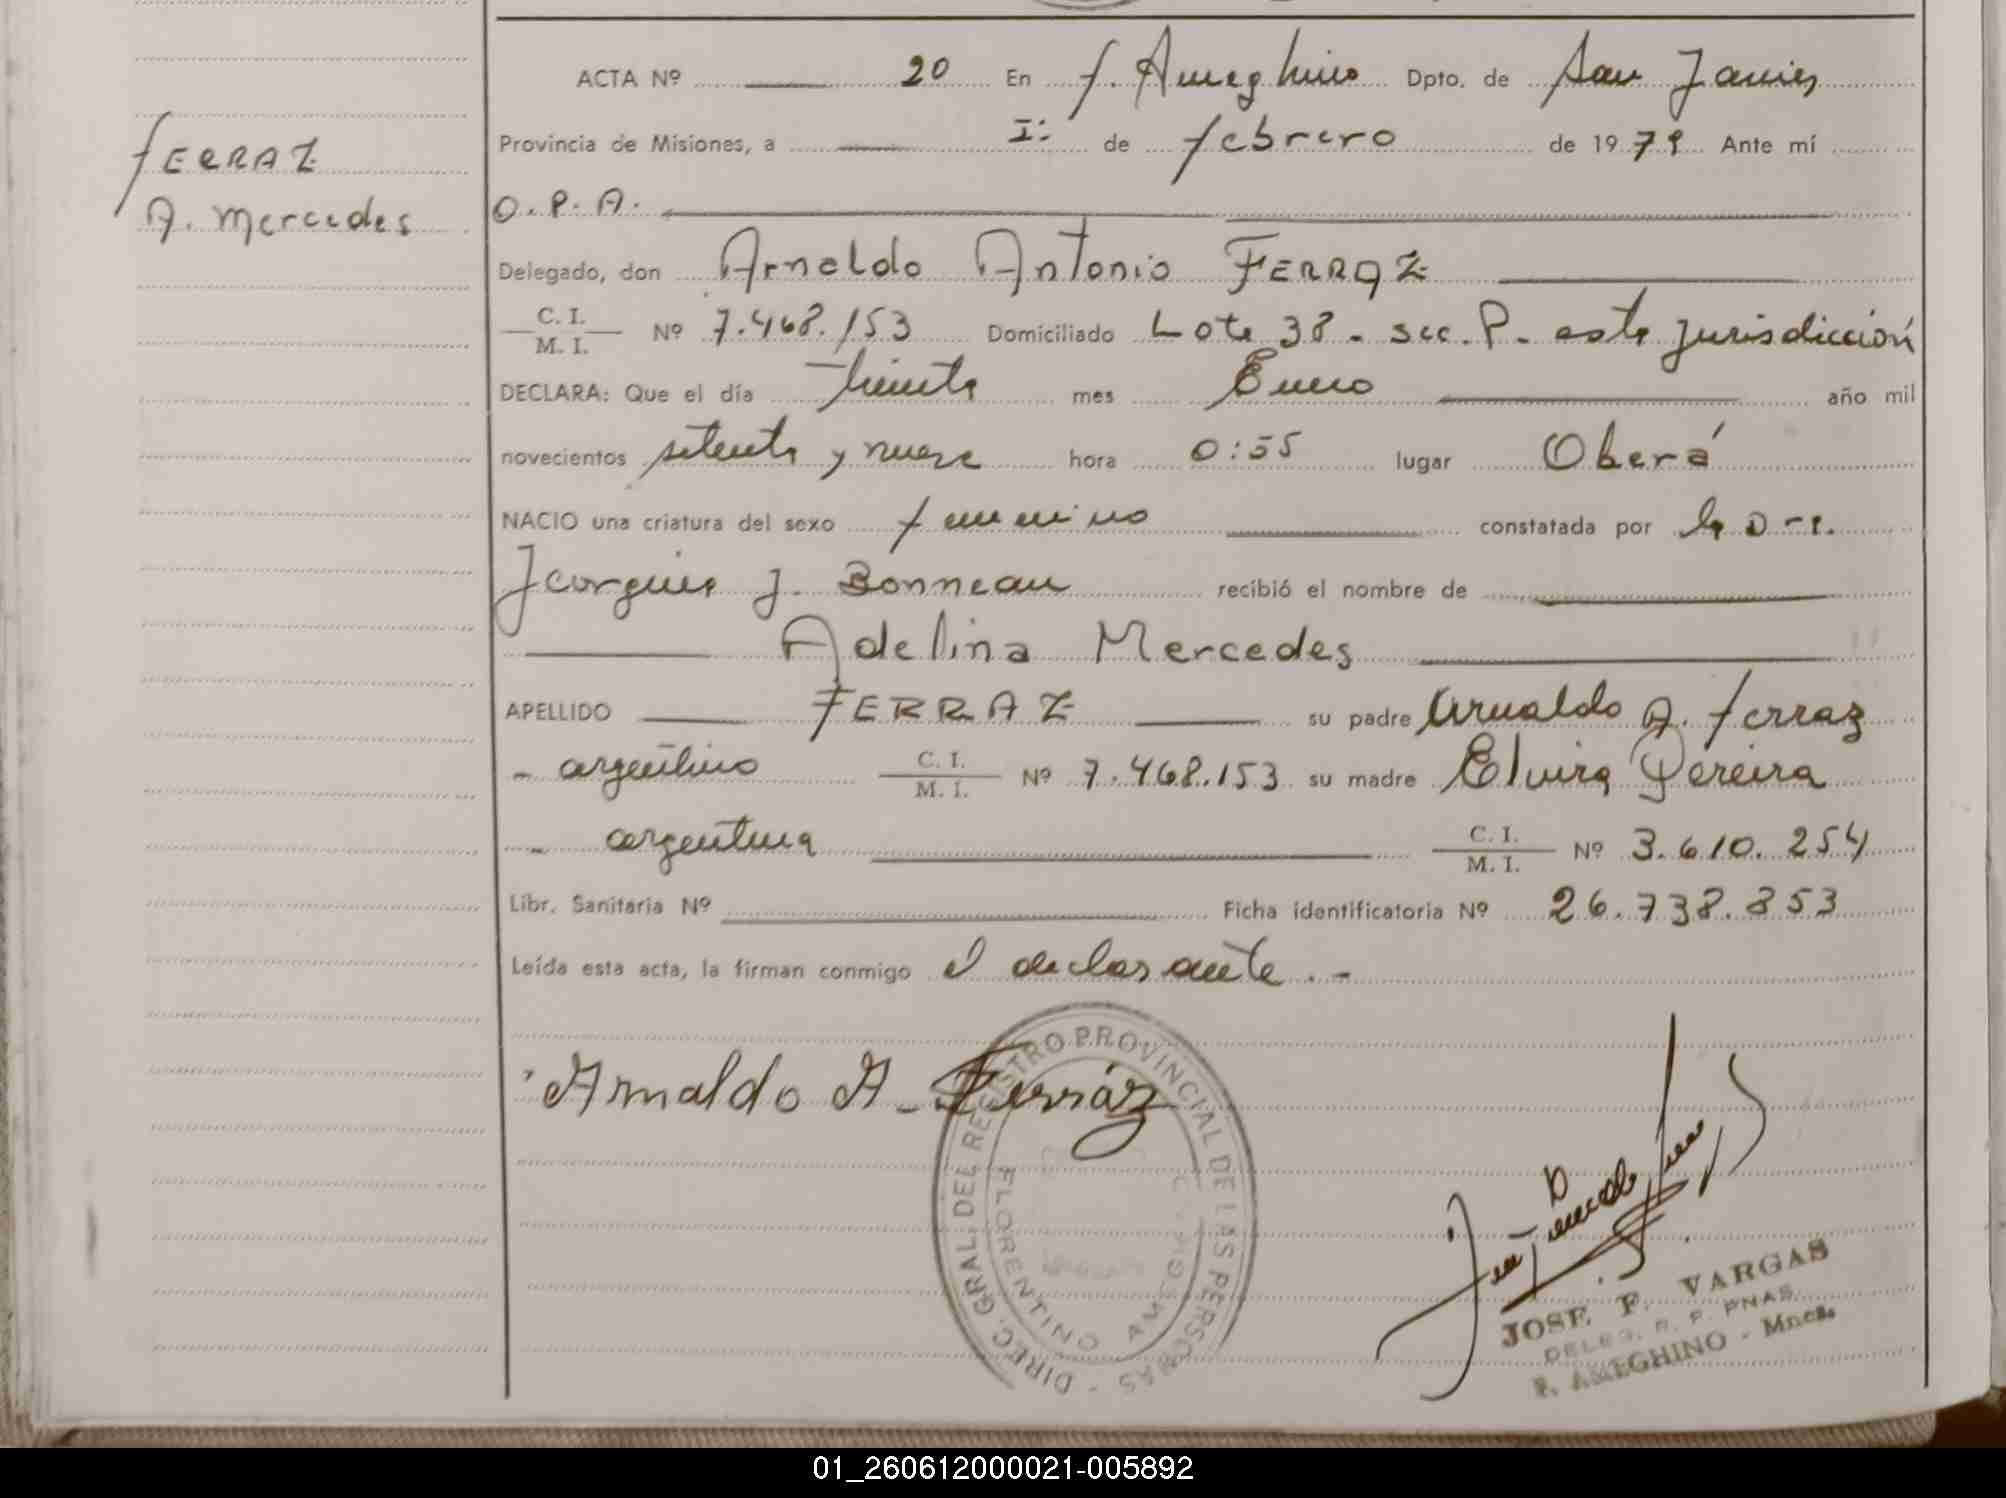 ACTA Nº 20 En F. Ameghino Dpto. de San Javier
Provincia de Misiones, a 1: de febrero de 1979 Ante mí
FERRAZ
A. Mercedes
O.P.A.
Delegado, don Arnoldo Antonio FERRAZ
C. I.
M. I. Nº 7.468.153 Domiciliado Lote 38 - sec. P - esta Jurisdicción
DECLARA: Que el día treinta mes Enero año mil
novecientos setenta y nueve hora 0:55 lugar Oberá
NACIO una criatura del sexo femenino constatada por
J. Bonneau recibió el nombre de
Adelina Mercedes
APELLIDO FERRAZ su padre Arnaldo A. Ferraz
- argentino C. I.
M. I. Nº 7.468.153 su madre Elvira Pereira
- argentina C. I.
M. I. Nº 3.610.254
Libr. Sanitaria Nº Ficha identificatoria Nº 26.738.853
Leída esta acta, la firman conmigo el declarante. -
Arnaldo A. Ferráz
DIREC. GRAL. DEL REGISTRO PROVINCIAL DE LAS PERSONAS -
FLORENTINO AMEGHINO
JOSE F. VARGAS
DELEG. R. P. PNAS.
F. AMEGHINO - Mnes.
01_260612000021-005892